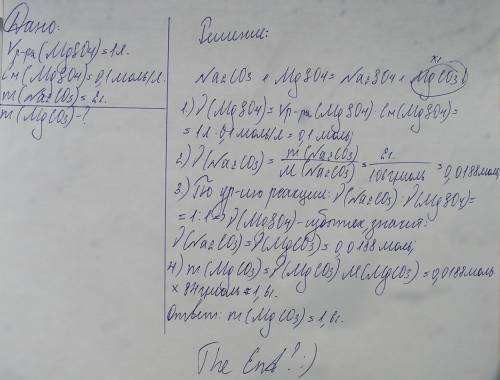 Дано:
Vр-ра(MgSO4)=1л.
Cм(MgSO4)=0,1 моль/л.
m(Na2CO3)=2г.
m(MgCO3)-?
Решение:
ж.
Na2CO3 + MgSO4 = Na2SO4 + MgCO3↓
1) ν(MgSO4)=Vр-ра(MgSO4)·Cм(MgSO4)=
=1л·0,1моль/л=0,1 моль;
2) ν(Na2CO3)= m(Na2CO3)/M(Na2CO3) = 2г./106г/моль =0,0188моль;
3) По ур-ию реакции: ν(Na2CO3):ν(MgSO4)=
=1:1=>ν(MgSO4)-избыток, значит:
ν(Na2CO3)=ν(MgCO3)=0,0188 моль;
4) m(MgCO3)=ν(MgCO3)·M(MgCO3)=0,0188моль
×84г/моль=1,6г.
Ответ: m(MgCO3)=1,6г.
The End!:)